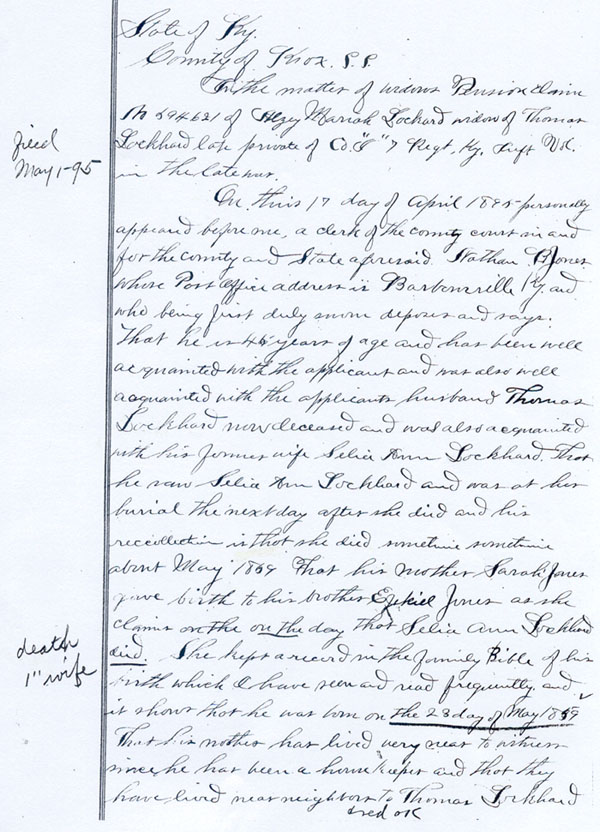 State of Ky.
County of Knox. S.S.
In the matter of widows Pension claim
No 594621 of Mariah Lockard widow of Thomas
filed
May 1-95
Lockhard late private of Co. "I" 7 Regt. Ky. Inft Vol.
in the late war.
On this 17 day of April 1895 personally
appeared before me, a clerk of the county court in and
for the county and State aforesaid. Nathan B Jones
whose Post Office address is Barbourville Ky. and
who being first duly sworn deposes and says.
That he is 45 years of age and has been well
acquainted with the applicant and was also well
acquainted with the applicants husband Thomas
Lockhard now deceased and was also acquainted
with his former wife Selia Ann Lockhard. That
he saw Selia Ann Lockhard and was at her
burial the next day after she died and his
reccollection is that she died sometime sometime
about May 1869 That his mother Sarah Jones
gave birth to his brother Ezekiel Jones as she
claims on the on the day that Selia Ann Lockhard
death
1" wife
died. She kept a record in the family Bible of his
birth which I have seen and read frequently and
it shows that he was born on the 28 day of May 1869
That his mother has lived very near to witness
since he has been a house keeper and that they
have lived near neighbors to Thomas Lockhard